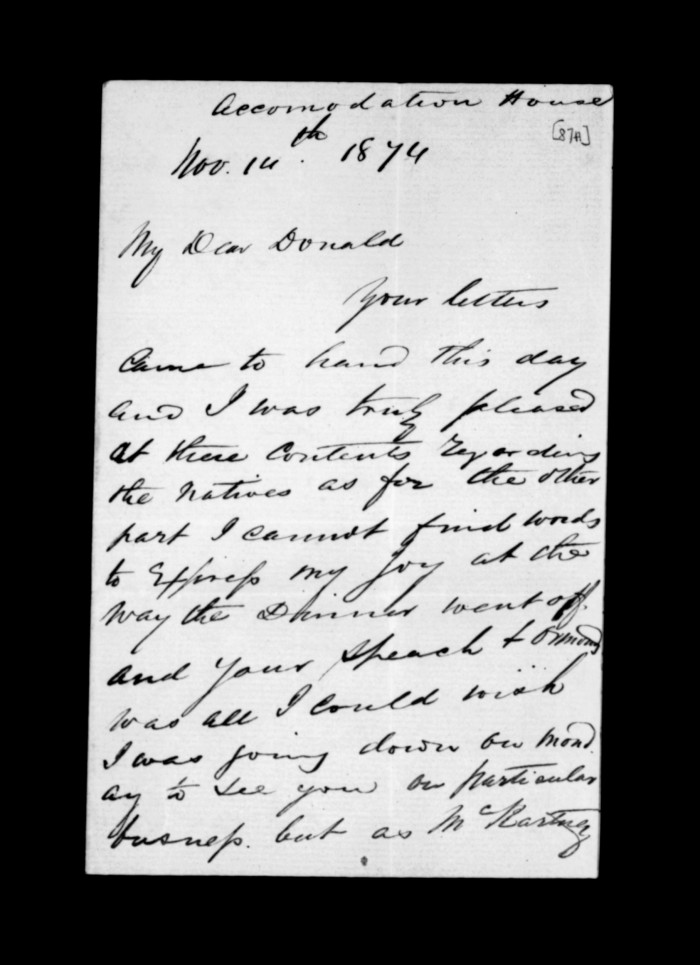 Accomodation House
[87A]
Nov. 14th. 1874
My Dear Donald
Your letters
Came to hand this day
and I was truly pleased
at there Contents regarding
the Natives as for the other
part I cannot find words
to Express my joy at the
way the Dinner went off.
and your Speach & Ormond
was all I could wish
I was going down on Mond.
ay to see you on particular
busness. but as McKartney